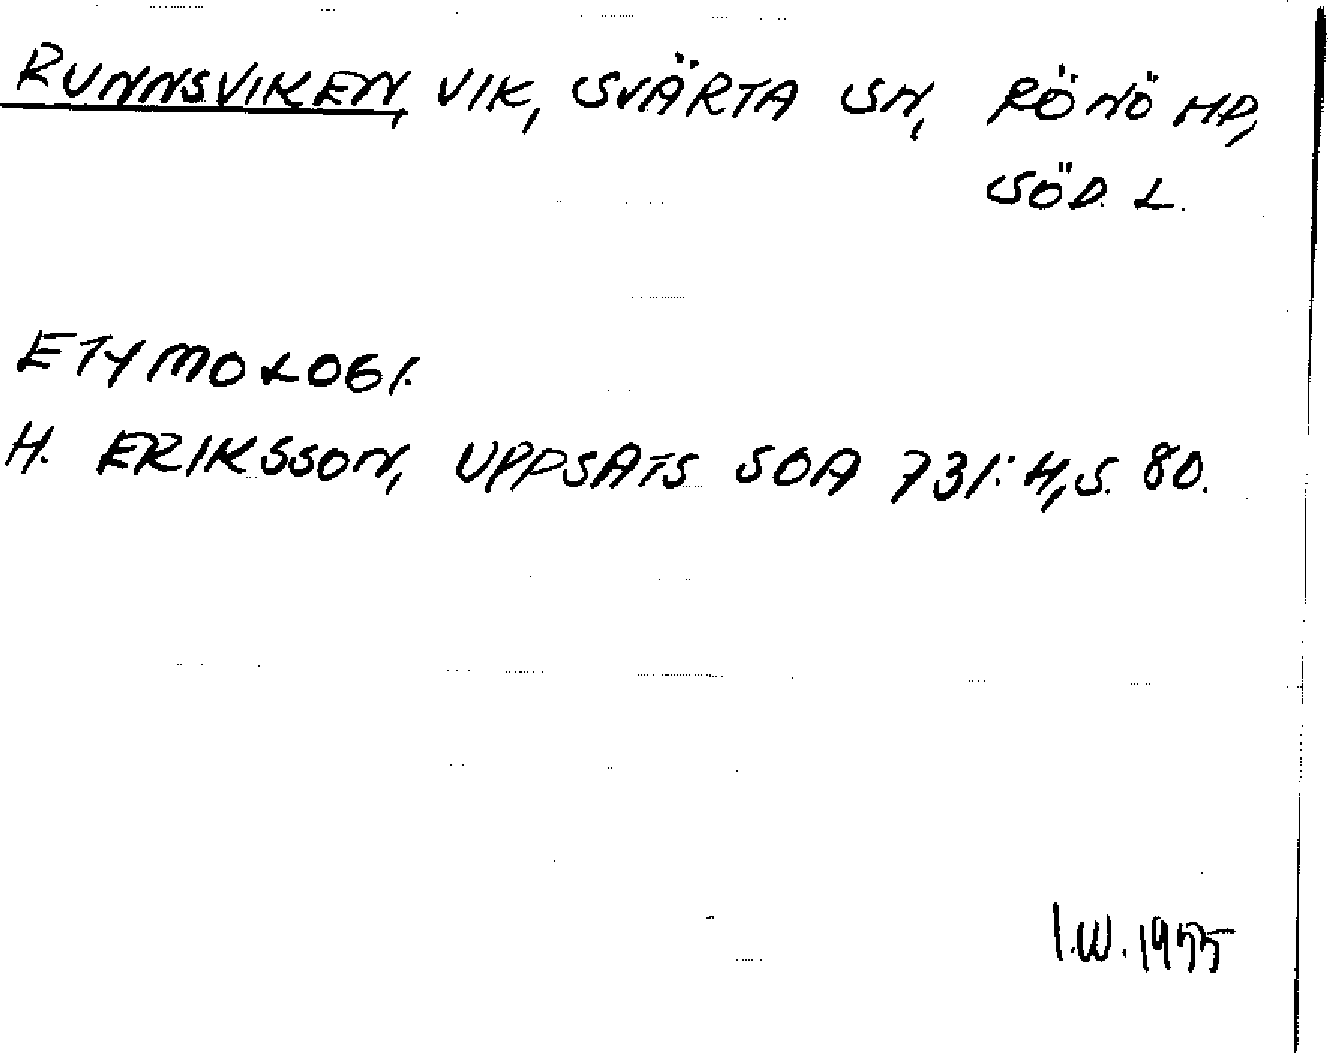 RUNNSVIKEN, VIK, SVÄRTA SN, RÖNÖ HD,
SÖD. L.
ETYMOLOGI.
H. ERIKSSON, UPPSATS SOA 731:4, S. 80.
I.W. 1955